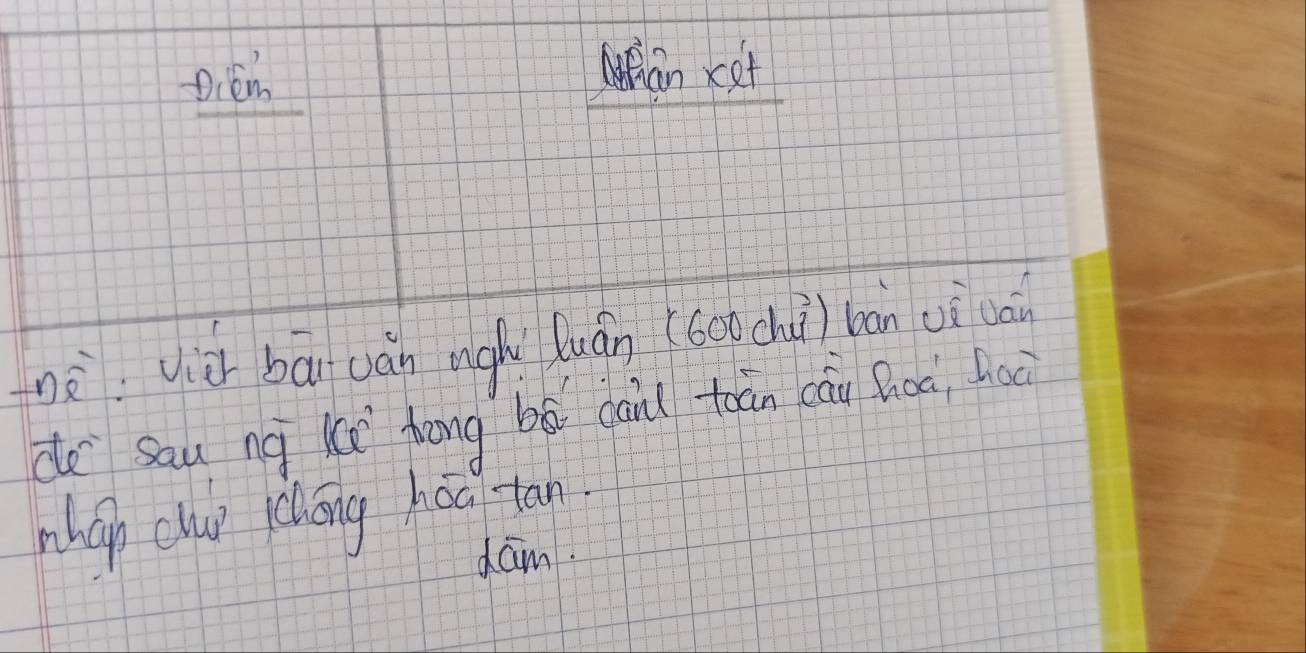 Điểm
Nhận xét
Đề: Viết bài văn nghị luận (600 chữ) bàn về vấn
đề sau trong bối cảnh toàn cầu hoá, hoà
nhập chứ không hoà tan.
Làm.